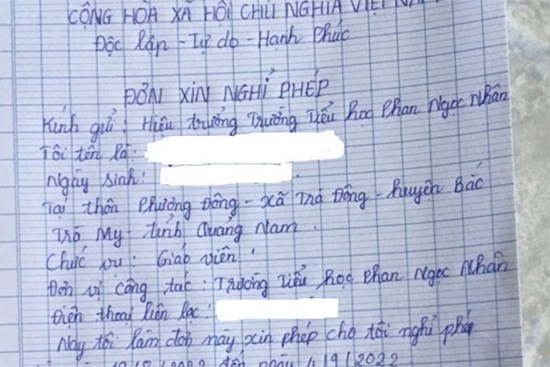 CỘNG HÒA XÃ HỘI CHỦ NGHĨA VIỆT NAM
Độc lập - Tự do - Hạnh Phúc
ĐƠN XIN NGHỈ PHÉP
Kính gửi : Hiệu trưởng Trường Tiểu học Phan Ngọc Nhân
Tôi tên là :
Ngày sinh :
Tại thôn Phương Đông - xã Trà Đông - huyện Bắc
Trà My - tỉnh Quảng Nam .
Chức vụ : Giáo viên .
Đơn vị công tác : Trường Tiểu học Phan Ngọc Nhân
Điện thoại liên lạc :
Nay tôi làm đơn này xin phép cho tôi nghỉ phép
2022 đến ngày 4/9/2022